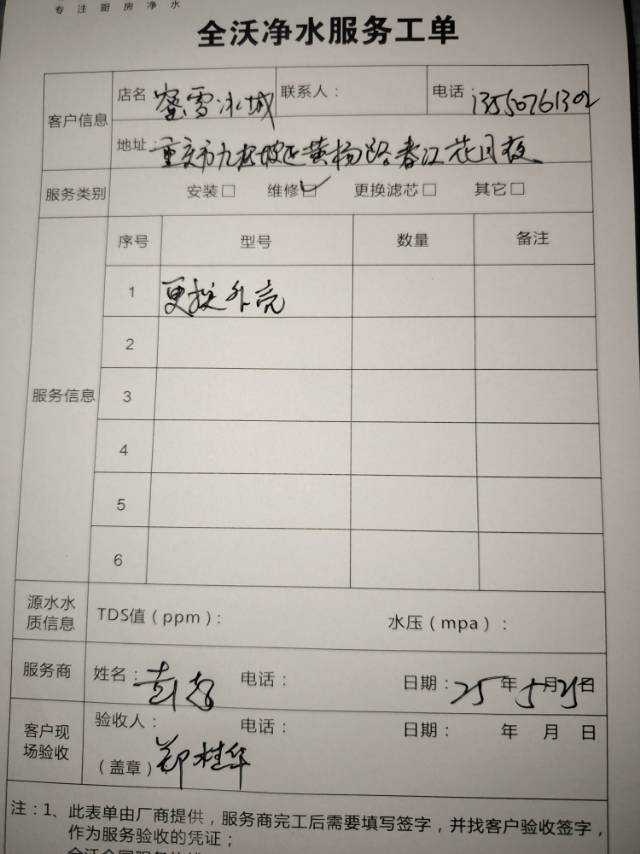 专注厨房净水
全沃净水服务工单
客户信息
店名 蜜雪冰城 联系人： 电话：13550761302
地址：重庆市九龙坡区黄杨路春江花月夜
服务类别 安装□ 维修☑ 更换滤芯□ 其它□
服务信息
序号 型号 数量 备注
1 更换外壳
2
3
4
5
6
源水水
质信息
TDS值（ppm）： 水压（mpa）：
服务商 姓名： 电话： 日期：25年5月25日
客户现
场验收
验收人： 电话： 日期： 年 月 日
（盖章） 郑桂华
注：1、此表单由厂商提供，服务商完工后需要填写签字，并找客户验收签字，
作为服务验收的凭证；